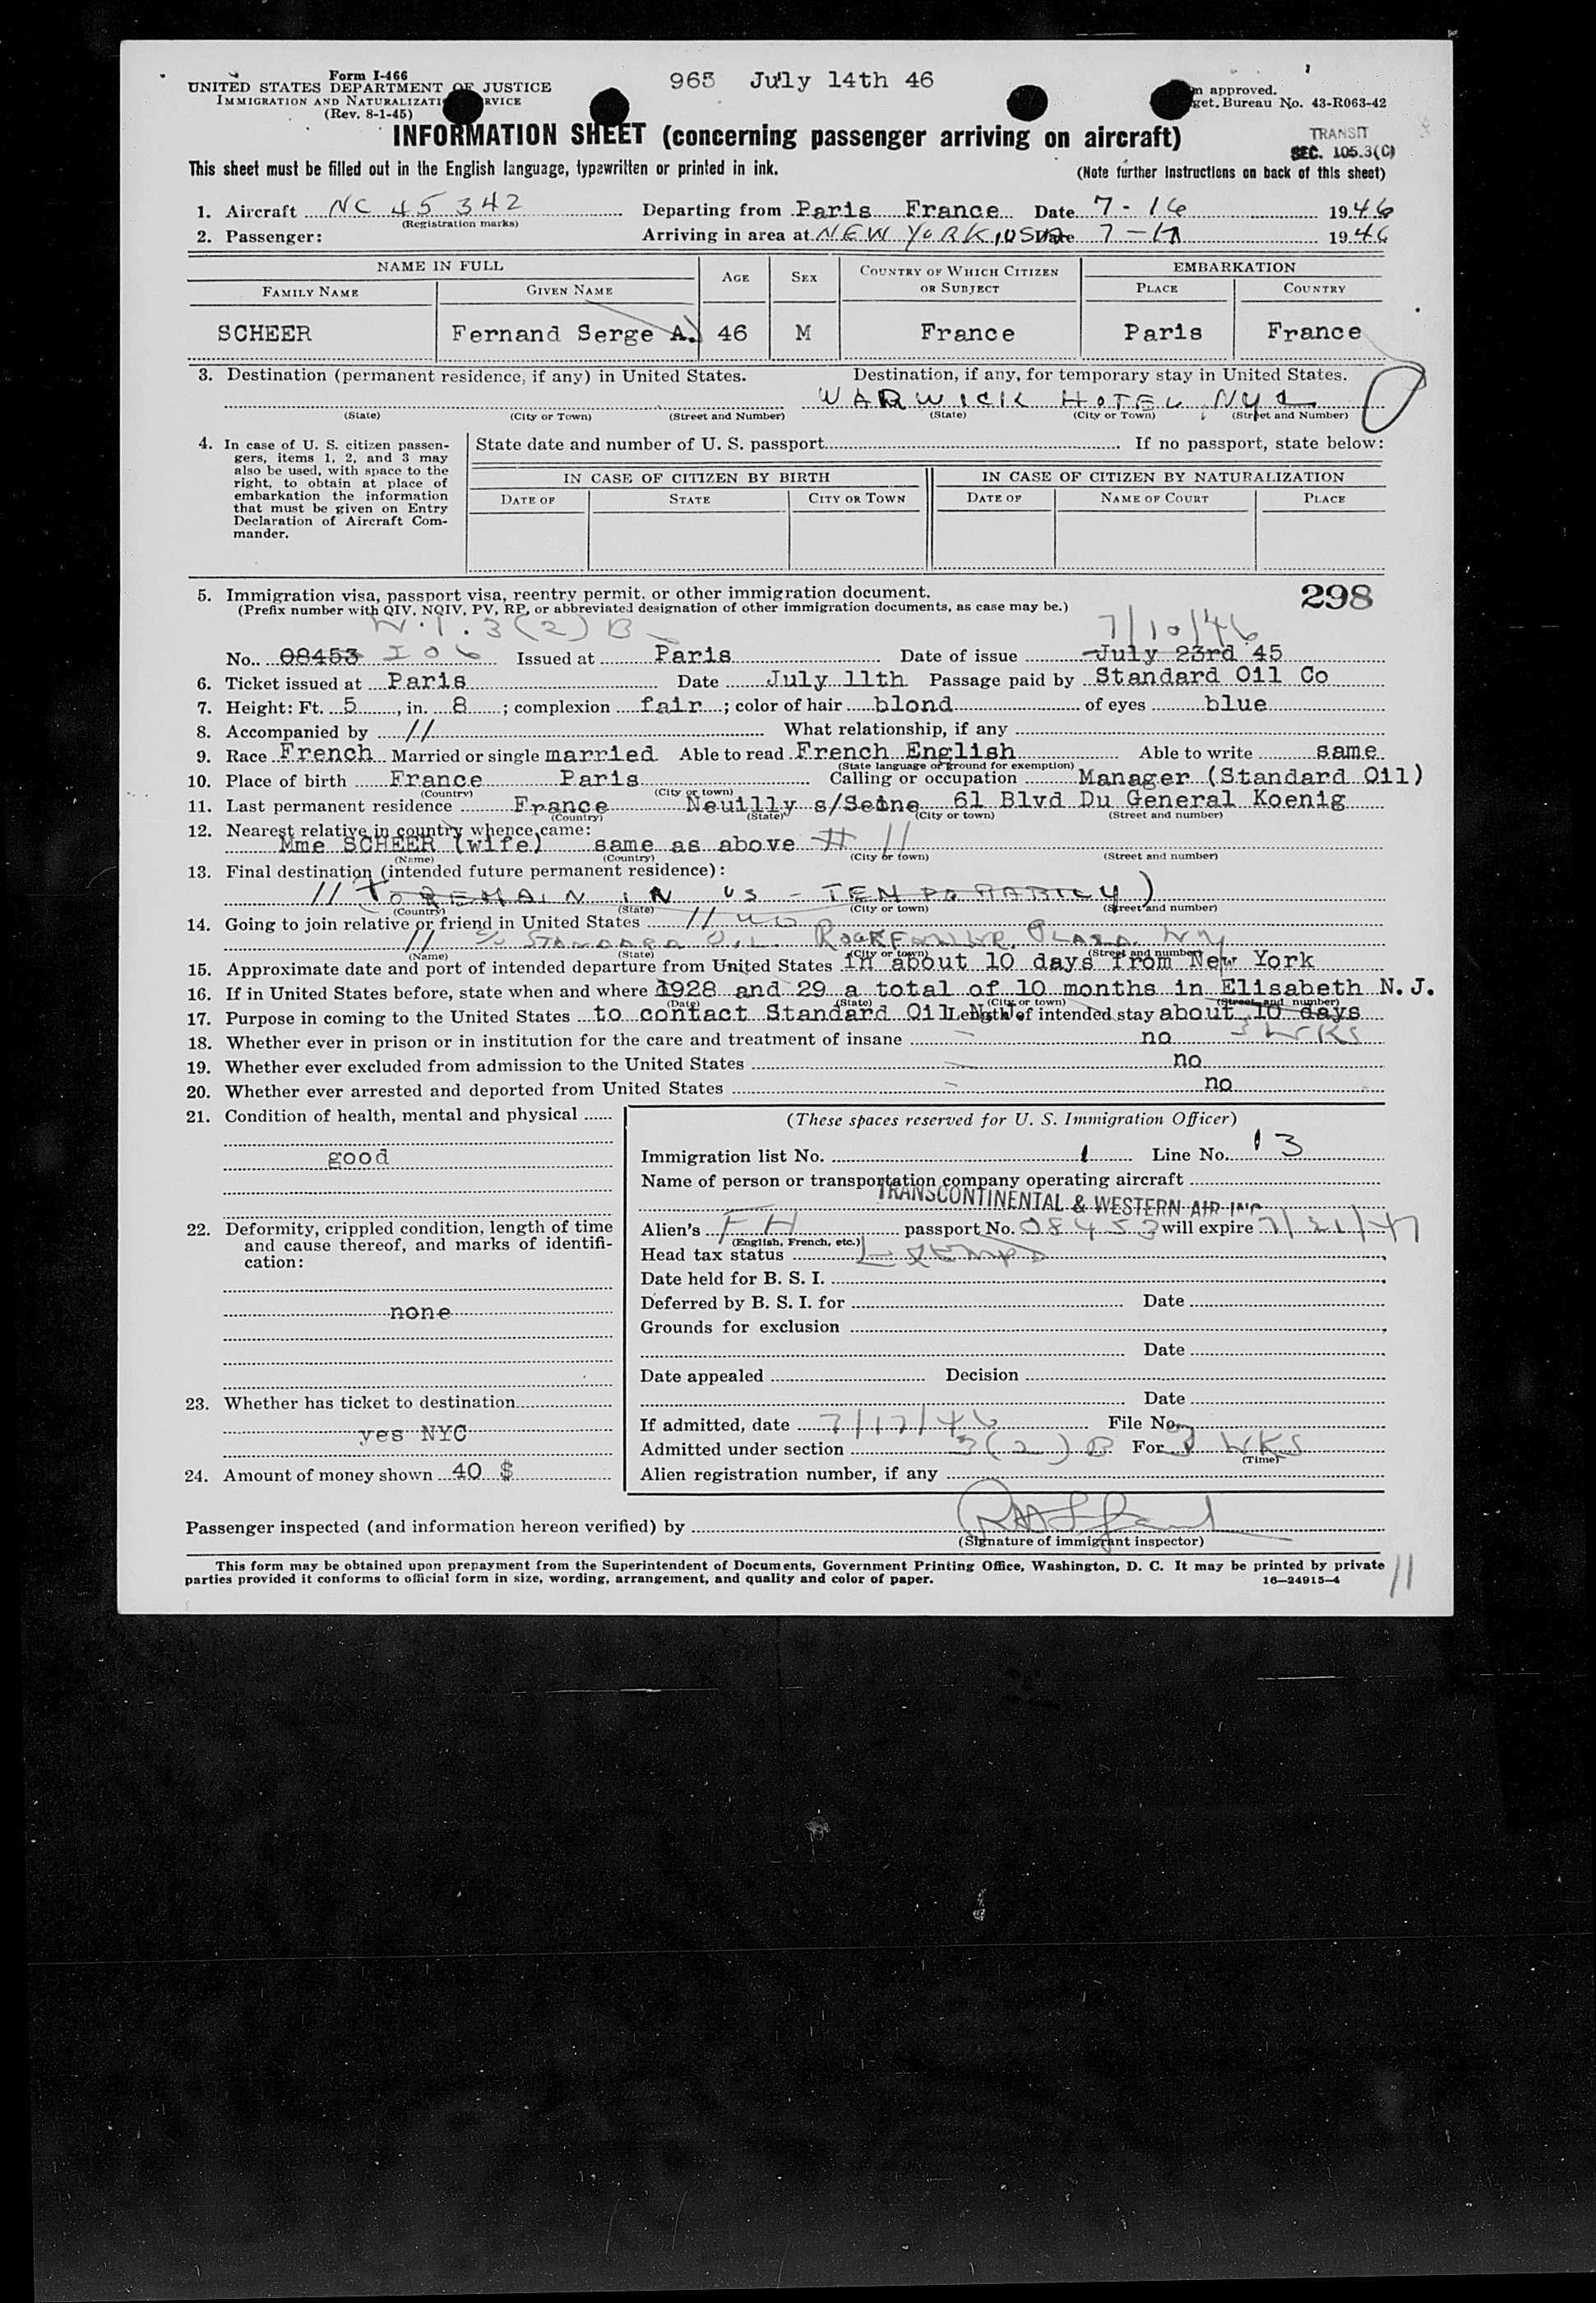 Form I-466
UNITED STATES DEPARTMENT OF JUSTICE
IMMIGRATION AND NATURALIZATION SERVICE
(Rev. 8-1-45)
965 July 14th 46
approved.
get Bureau No. 43-R063-42
INFORMATION SHEET (concerning passenger arriving on aircraft)
TRANSIT
SEC. 105.3(C)
This sheet must be filled out in the English language, typewritten or printed in ink. (Note further instructions on back of this sheet)
1. Aircraft NC 45342 Departing from Paris France Date 7-16 1946
(Registration marks)
2. Passenger: Arriving in area at NEW YORK, USA Date 7- 1946
NAME IN FULL AGE SEX COUNTRY OF WHICH CITIZEN OR SUBJECT EMBARKATION
FAMILY NAME GIVEN NAME PLACE COUNTRY
SCHEER Fernand Serge A. 46 M France Paris France
3. Destination (permanent residence, if any) in United States. Destination, if any, for temporary stay in United States.
WARWICK HOTEL NYC
(State) (City or Town) (Street and Number) (State) (City or Town) (Street and Number)
4. In case of U. S. citizen passengers, items 1, 2, and 3 may also be used, with space to the right, to obtain at place of embarkation the information that must be given on Entry Declaration of Aircraft Commander.
State date and number of U. S. passport If no passport, state below:
IN CASE OF CITIZEN BY BIRTH IN CASE OF CITIZEN BY NATURALIZATION
DATE OF STATE CITY OR TOWN DATE OF NAME OF COURT PLACE
5. Immigration visa, passport visa, reentry permit, or other immigration document. 298
(Prefix number with QIV, NQIV, PV, RP, or abbreviated designation of other immigration documents, as case may be.)
3(2)B 7/10/46
No. 08453 I06 Issued at Paris Date of issue July 23rd 45
6. Ticket issued at Paris Date July 11th Passage paid by Standard Oil Co
7. Height: Ft. 5, in. 8; complexion fair; color of hair blond of eyes blue
8. Accompanied by // What relationship, if any
9. Race French Married or single married Able to read French English Able to write same
(State language or ground for exemption)
10. Place of birth France Paris Calling or occupation Manager (Standard Oil)
(Country) (City or town)
11. Last permanent residence France Neuilly s/Seine 61 Blvd Du General Koenig
(Country) (State) (City or town) (Street and number)
12. Nearest relative in country whence came:
Mme SCHEER (wife) same as above //
(Name) (Country) (City or town) (Street and number)
13. Final destination (intended future permanent residence):
// (TO REMAIN IN US - TEMPORARILY)
(Country) (State) (City or town) (Street and number)
14. Going to join relative or friend in United States // no
// c/o STANDARD OIL ROCKEFELLER PLAZA NY
(Name) (State) (City or town) (Street and number)
15. Approximate date and port of intended departure from United States in about 10 days from New York
16. If in United States before, state when and where 1928 and 29 a total of 10 months in Elisabeth N.J.
(Date) (State) (City or town) (Street and number)
17. Purpose in coming to the United States to contact Standard Oil N.J. Length of intended stay about 10 days
3 WKS
18. Whether ever in prison or in institution for the care and treatment of insane no
19. Whether ever excluded from admission to the United States no
20. Whether ever arrested and deported from United States no
21. Condition of health, mental and physical
good
22. Deformity, crippled condition, length of time and cause thereof, and marks of identification:
none
23. Whether has ticket to destination
yes NYC
24. Amount of money shown 40 $
(These spaces reserved for U. S. Immigration Officer)
Immigration list No. 1 Line No. 13
Name of person or transportation company operating aircraft
TRANSCONTINENTAL & WESTERN AIR INC
Alien's passport No. 08453 will expire 7/21/47
(English, French, etc.)
Head tax status Exempt
Date held for B. S. I.
Deferred by B. S. I. for Date
Grounds for exclusion
Date
Date appealed Decision
Date
If admitted, date 7/17/46 File No.
Admitted under section 3(2)B For 3 WKS
(Time)
Alien registration number, if any
Passenger inspected (and information hereon verified) by
(Signature of immigrant inspector)
This form may be obtained upon prepayment from the Superintendent of Documents, Government Printing Office, Washington, D. C. It may be printed by private
parties provided it conforms to official form in size, wording, arrangement, and quality and color of paper. 16—24915-4
11